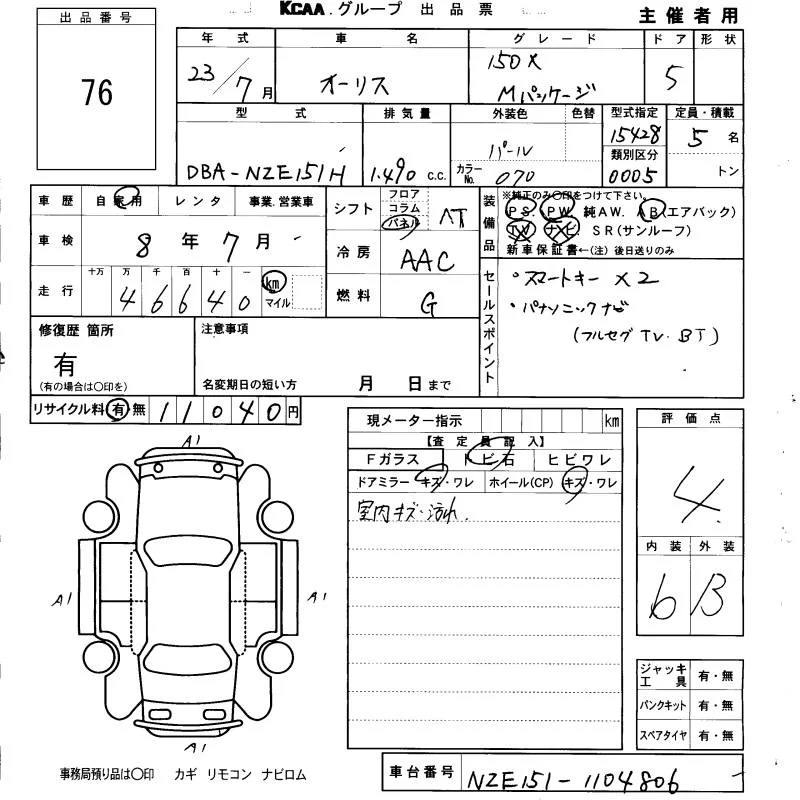 KCAA.グループ 出品票
主催者用
出品番号
76
年式 車名 グレード ドア 形状
23/7月 オーリス 150X Mパッケージ 5
型式 排気量 外装色 色替 型式指定 定員・積載
DBA-NZE151H 1.490 c.c. パール 15428 5名
カラーNo. 070 類別区分 0005 トン
車歴 自家用 レンタ 事業.営業車
シフト フロア コラム パネル AT
装備品 ※純正のみ○印をつけて下さい。
PS. PW. 純AW. AB(エアバック)
TV ナビ SR(サンルーフ)
新車保証書←(注) 後日送りのみ
車検 8年7月
冷房 AAC
走行 十万 万 千 百 十 一 km マイル
46640
燃料 G
セールスポイント
・スマートキー X2
・パナソニックナビ
(フルセグTV.BT)
修復歴 箇所
有
(有の場合は○印を)
注意事項
名変期日の短い方 月 日まで
リサイクル料 有 無 11040円
現メーター指示 km
【査定員記入】
Fガラス トビ石 ヒビワレ
ドアミラー キズ・ワレ ホイール(CP) キズ・ワレ
室内キズ・汚れ.
評価点
4
内装 外装
b B
A1
A1
A1
A1
ジャッキ工具 有・無
パンクキット 有・無
スペアタイヤ 有・無
事務局預り品は○印 カギ リモコン ナビロム
車台番号 NZE151-1104806